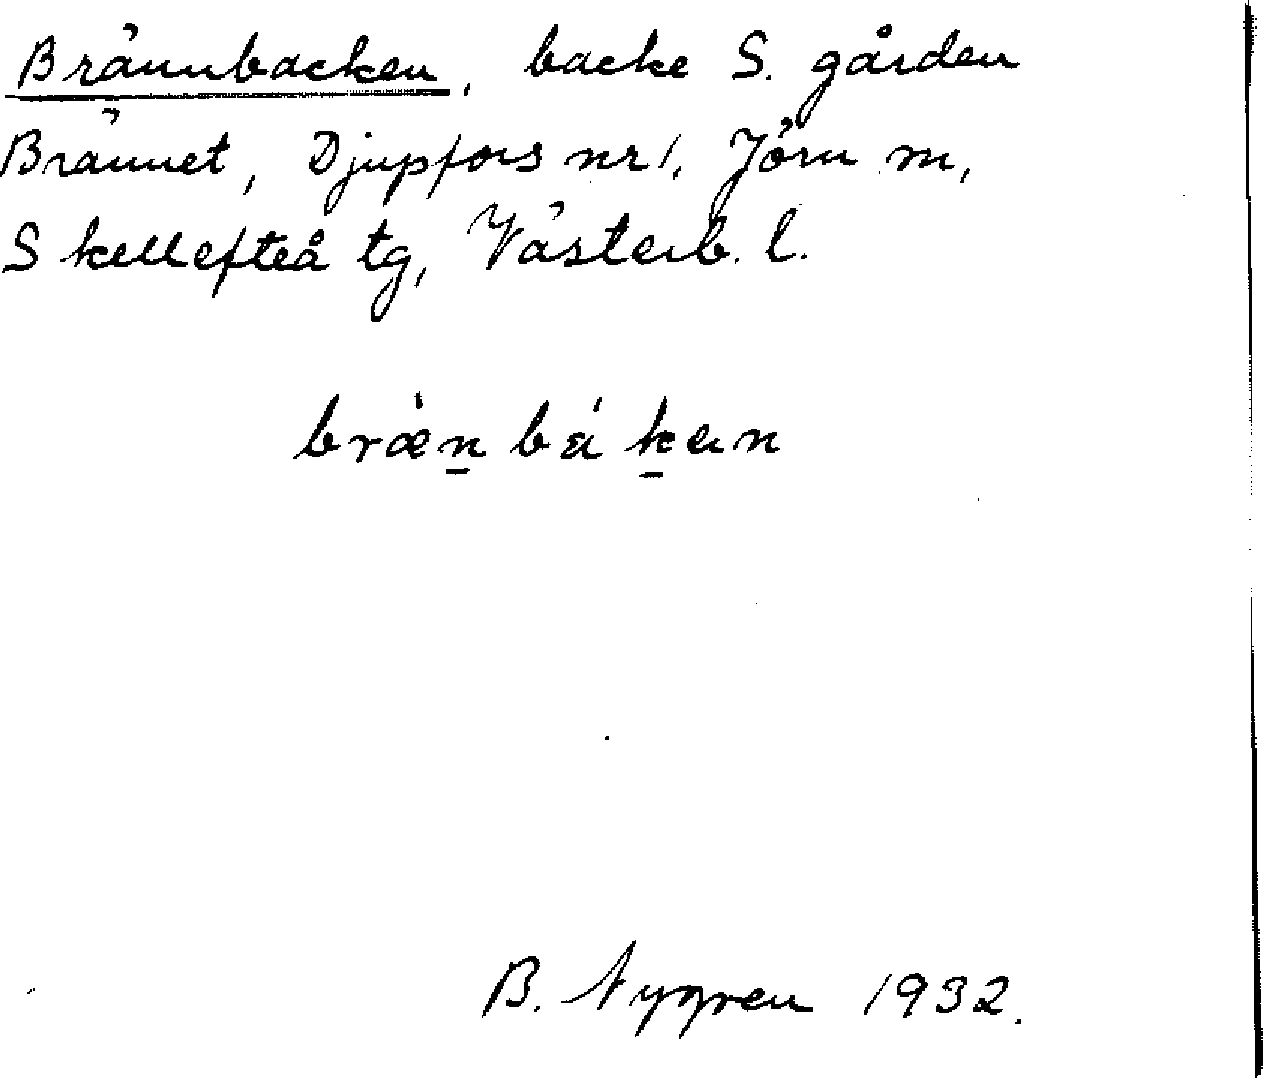 Brännbacken, backe S. gården
Brännet, Djupfors nr 1, Jörn sn,
Skellefteå tg, Västerb. l.
bræ̀n̲ bá k̲en
B. Nygren 1932.